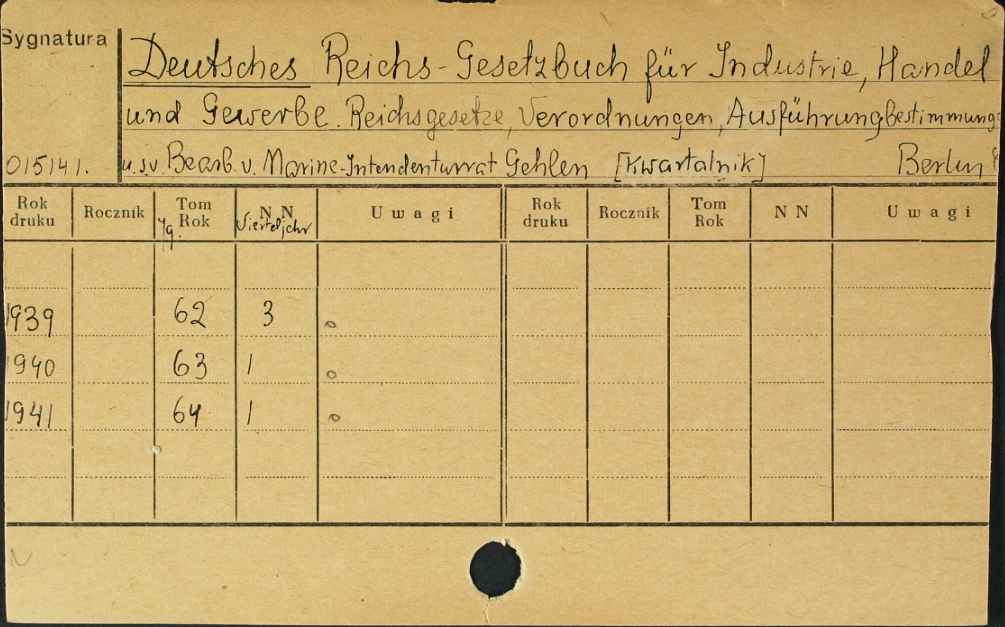 Sygnatura
Deutsches Reichs-Gesetzbuch für Industrie, Handel
und Gewerbe. Reichsgesetze, Verordnungen, Ausführungbestimmung
015141. u.s.v. Bearb. v. Marine-Intendenturrat Gehlen [Kwartalnik] Berlin
Rok druku Rocznik Tom Rok Jg. N N Vierteljahr Uwagi Rok druku Rocznik Tom Rok N N Uwagi
1939 62 3
1940 63 1
1941 64 1